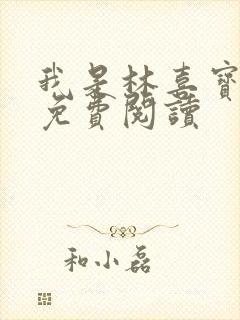 我是林喜寶
免費閱讀
和小磊